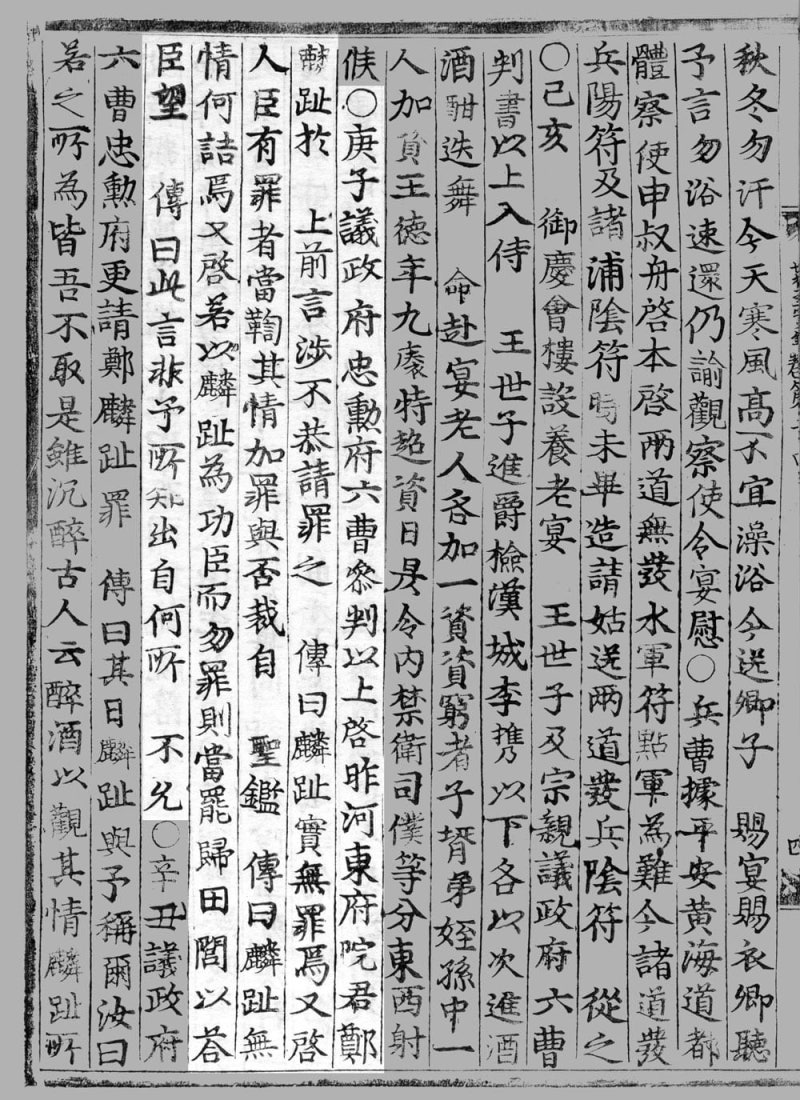 秋冬勿汗今天寒風高不宜澡浴今送卿子 賜宴賜衣卿聽
予言勿浴速還仍諭觀察使令宴慰○兵曹據平安黃海道都
體察使申叔舟啓本啓兩道無發水軍符點軍為難今諸道發
兵陽符及諸浦陰符時未畢造請姑送兩道發兵陰符 從之
○己亥 御慶會樓設養老宴 王世子及宗親議政府六曹
判書以上入侍 王世子進爵檢漢城李攜以下各以次進酒
酒酣迭舞 命赴宴老人各加一資資窮者子壻弟姪孫中一
人加資王德年九特超資日昃令內禁衛司僕等分東西射
侯○庚子議政府忠勳府六曹參判以上啓昨河東府院君鄭
麟趾於 上前言涉不恭請罪之 傳曰麟趾實無罪焉又啓
人臣有罪者當鞫其情加罪與否裁自 聖鑑 傳曰麟趾無
情何詰焉又啓若以麟趾為功臣而勿罪則當罷歸田閭以答
臣望 傳曰此言非予所知出自何所 不允○辛丑議政府
六曹忠勳府更請鄭麟趾罪 傳曰其日麟趾與予稱爾汝曰
若之所為皆吾不取是雖沉醉古人云醉酒以觀其情麟趾所